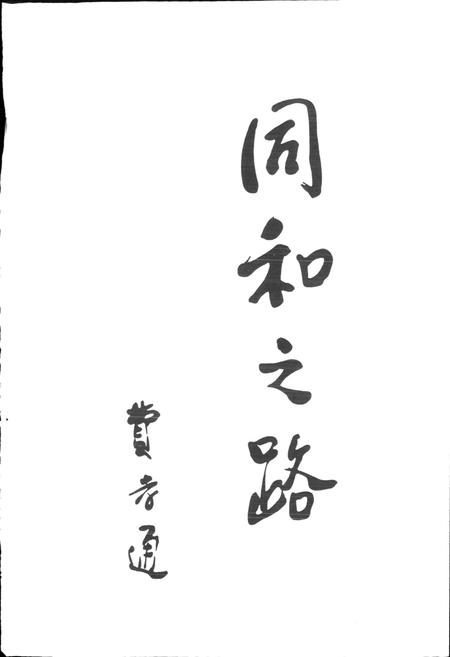 同和之路
费孝通